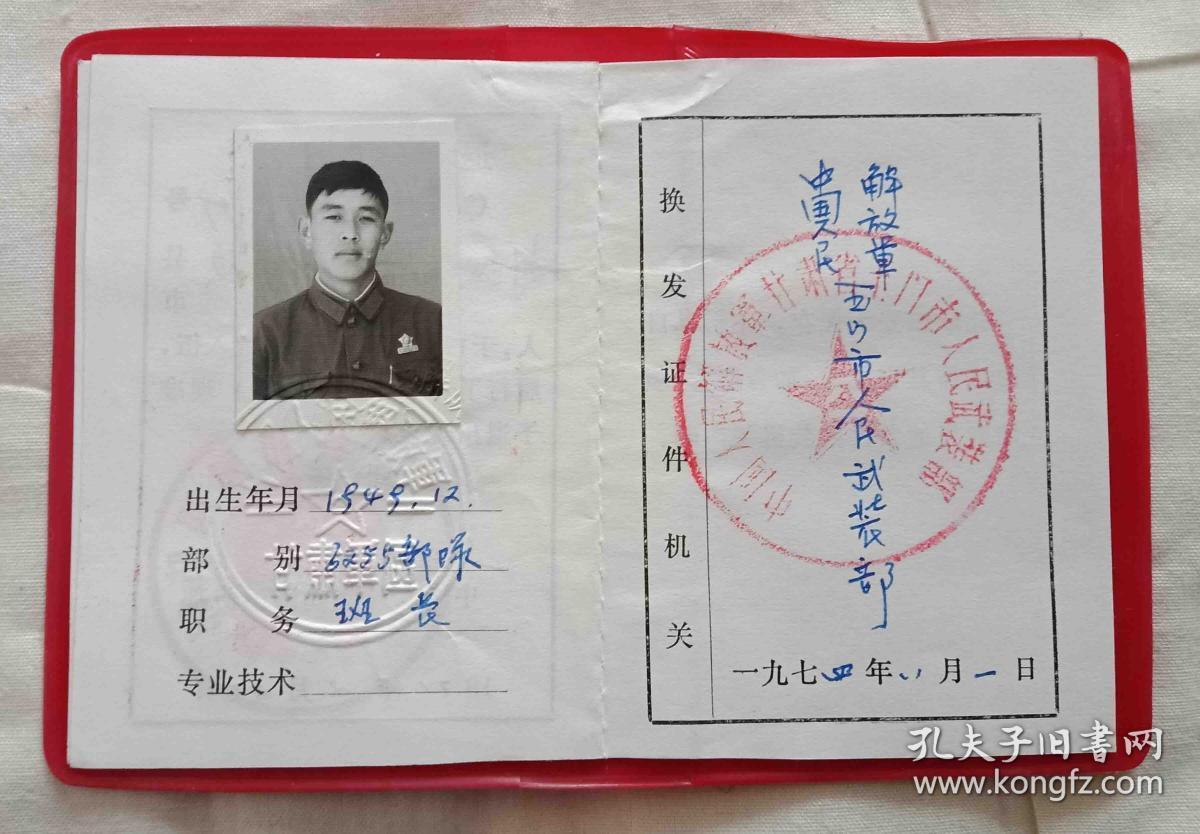 出生年月 1949.12.
部别 部隊
职务 班长
专业技术
换发证件机关
中国人民
解放軍
玉门市人民武装部
中国人民解放軍甘肃省玉门市人民武装部
一九七四年八月一日
孔夫子旧书网
www.kongfz.com